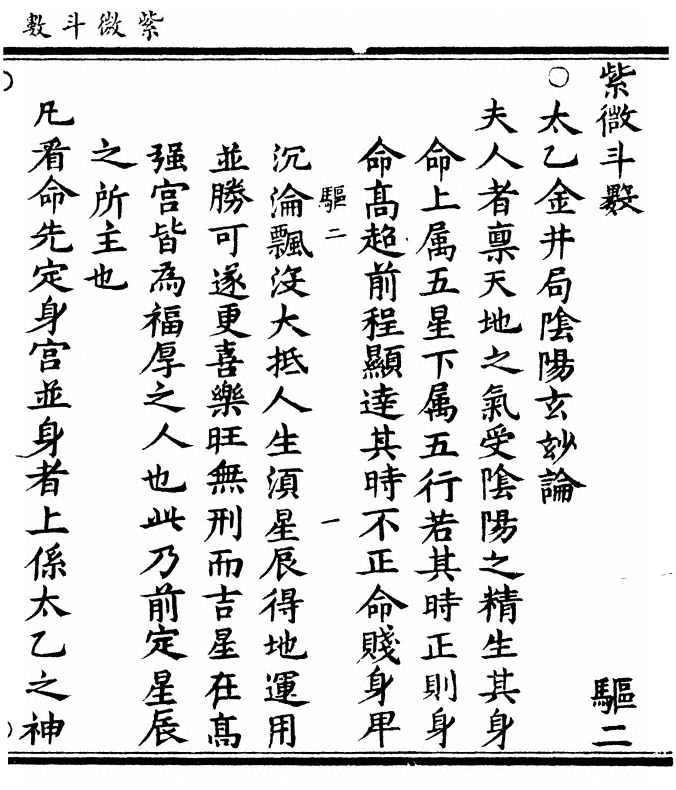 紫微斗數
紫微斗數 驅二
○太乙金井局陰陽玄妙論
夫人者禀天地之氣受陰陽之精生其身
命上属五星下属五行若其時正則身
命髙超前程顯逹其時不正命賤身卑
驅二 一
沉淪飄沒大抵人生湏星辰得地運用
並勝可遂更喜樂旺無刑而吉星在髙
强宫皆為福厚之人也此乃前定星辰
之所主也
凡看命先定身宫並身者上係太乙之神